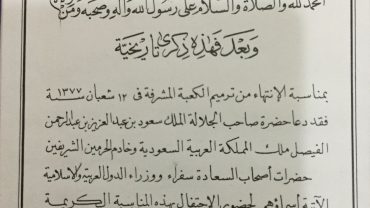 الحمد لله والصلاة والسلام على رسول الله وآله وصحبه ومن
وبعد فهذه ذكرى تاريخية
بمناسبة الإنتهاء من ترميم الكعبة المشرفة في ١٢ شعبان سنة ١٣٧٧
فقد دعا حضرة صاحب الجلالة الملك سعود بن عبد العزيز بن عبد الرحمن
الفيصل ملك المملكة العربية السعودية وخادم الحرمين الشريفين
حضرات أصحاب السعادة سفراء ووزراء الدول العربية والاسلامية
الآتية أسماؤهم لحضور الاحتفال بهذه المناسبة الكريمة